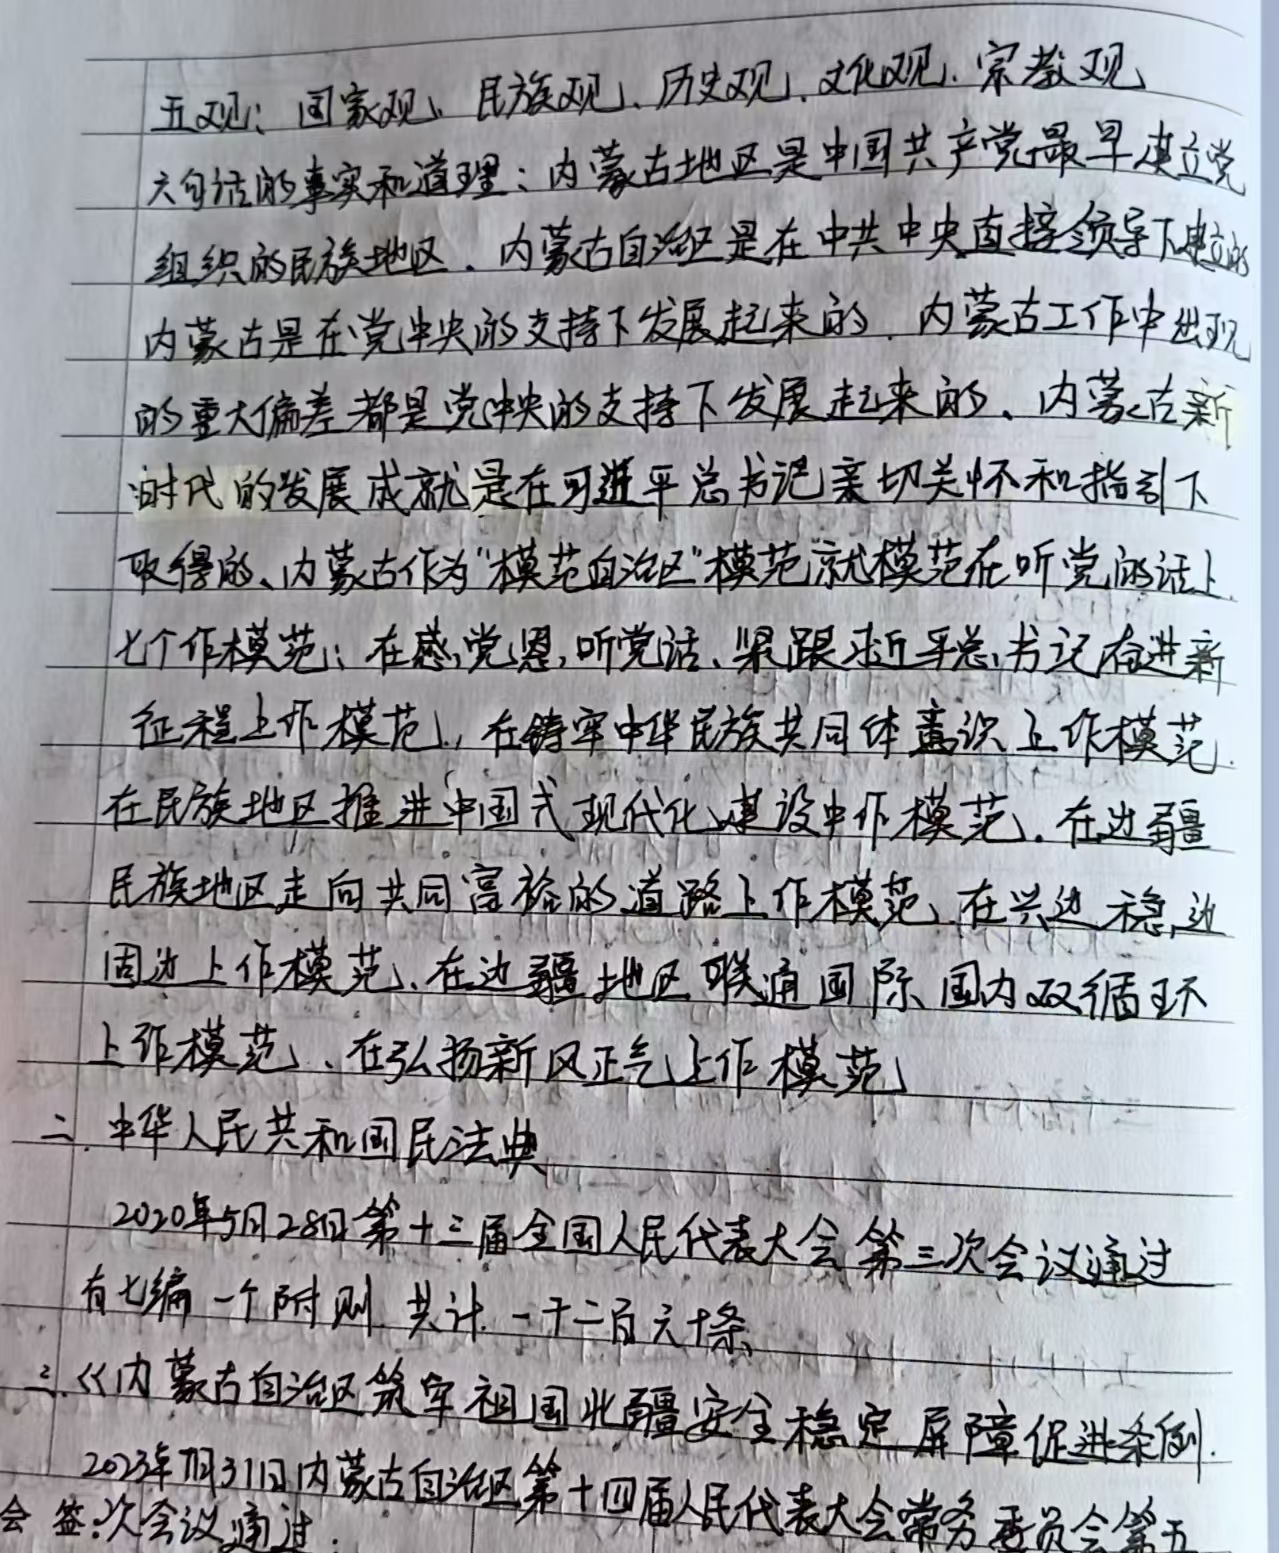 五观：国家观、民族观、历史观、文化观、宗教观
六句话的事实和道理：内蒙古地区是中国共产党最早建立党
组织的民族地区、内蒙古自治区是在中共中央直接领导下建立的
内蒙古是在党中央的支持下发展起来的、内蒙古工作中出现
的重大偏差都是党中央的支持下发展起来的、内蒙古新
时代的发展成就是在习近平总书记亲切关怀和指引下
取得的、内蒙古作为“模范自治区”模范就模范在听党的话上
七个作模范：在感党恩，听党话、紧跟习近平总书记奋进新
征程上作模范、在铸牢中华民族共同体意识上作模范、
在民族地区推进中国式现代化建设中作模范、在边疆
民族地区走向共同富裕的道路上作模范、在兴边稳边
固边上作模范、在边疆地区联通国际国内双循环
上作模范、在弘扬新风正气上作模范
二、中华人民共和国民法典
2020年5月28日第十三届全国人民代表大会第三次会议通过
有七编一个附则 共计一千二百六十条
三、《内蒙古自治区筑牢祖国北疆安全稳定屏障促进条例
2023年7月31日内蒙古自治区第十四届人民代表大会常务委员会第五
会签：次会议通过.